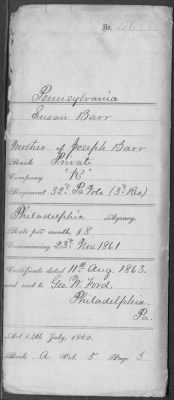 No.
Pennsylvania
Susan Barr
Mother of Joseph Barr
Rank Private
Company "K"
Regiment 32d Pa Vols (3d Res)
Philadelphia Agency.
Rate per month, $8
Commencing 23d Nov. 1861
Certificate dated 11th Aug. 1863.
and sent to Geo. W. Ford,
Philadelphia
Pa.
Act 14th July, 1862.
Book A Vol. 5 Page 3